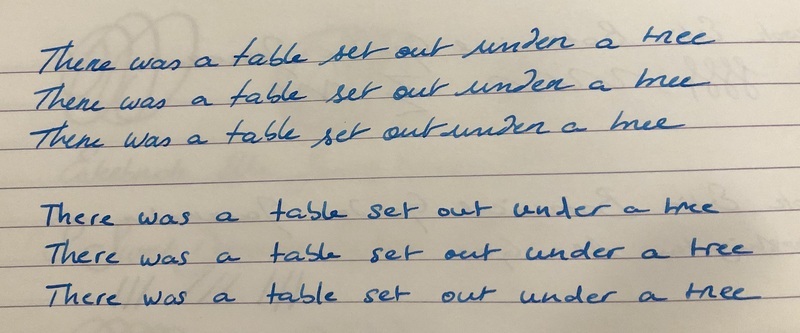 There was a table set out under a tree
There was a table set out under a tree
There was a table set out under a tree
There was a table set out under a tree
There was a table set out under a tree
There was a table set out under a tree